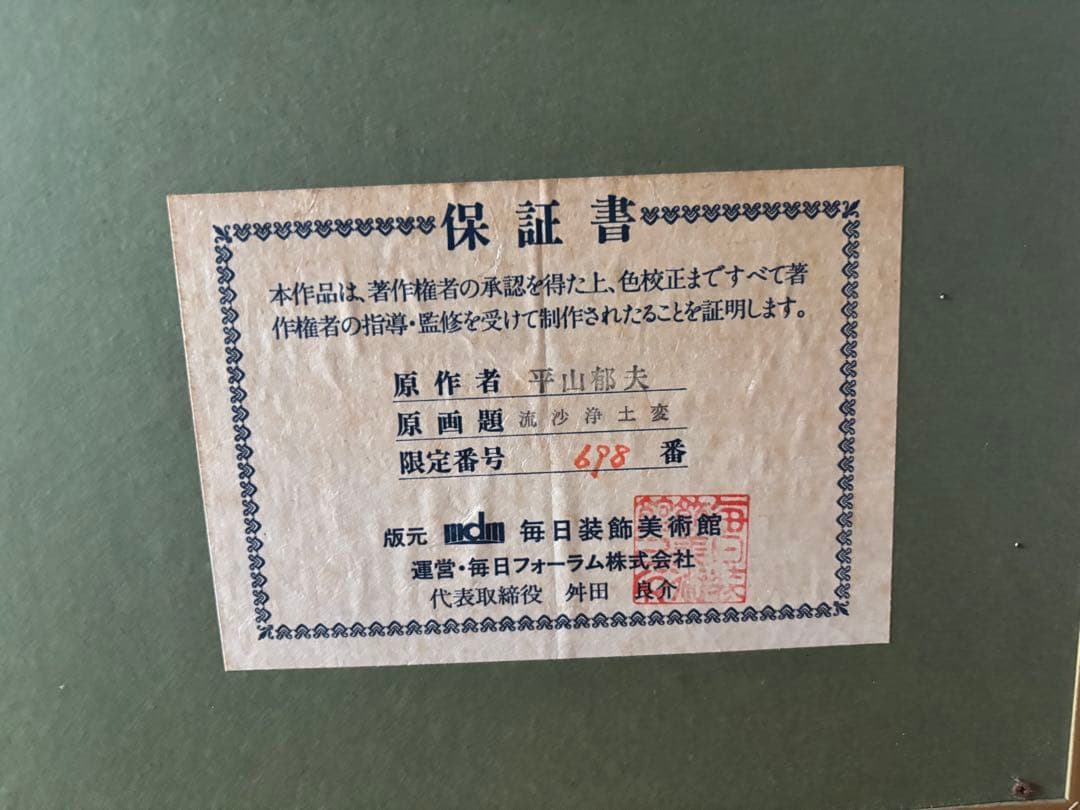 保証書
本作品は、著作権者の承認を得た上、色校正まですべて著
作権者の指導・監修を受けて制作されたることを証明します。
原作者 平山郁夫
原画題 流沙浄土変
限定番号 698 番
版元 mdm 毎日装飾美術館
運営・毎日フォーラム株式会社
代表取締役 舛田 良介